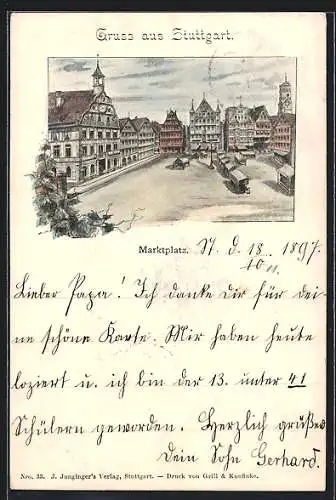 Gruss aus Stuttgart.
Marktplatz.
St. d. 18/10 11. 1897.
Lieber Papa! Ich danke dir für dei-
ne schöne Karte. Mir haben heute
loziert u. ich bin der 13. unter 41
Schülern geworden. Herzlich grüßt
Dein Sohn Gerhard.
Nro. 33. J. Junginger's Verlag, Stuttgart. — Druck von Grill & Kauffmann.